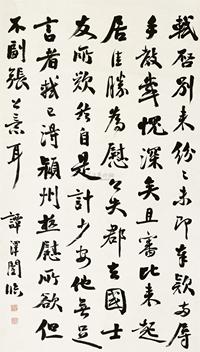 軾啓別來紛紛未即奉辱
手教愧深矣且審比來起
居佳勝為慰公失郡去國士
友所歎然自是計少安他無足
言者軾已得潁州極慰所欲但
不副張公意耳 譚澤闓臨